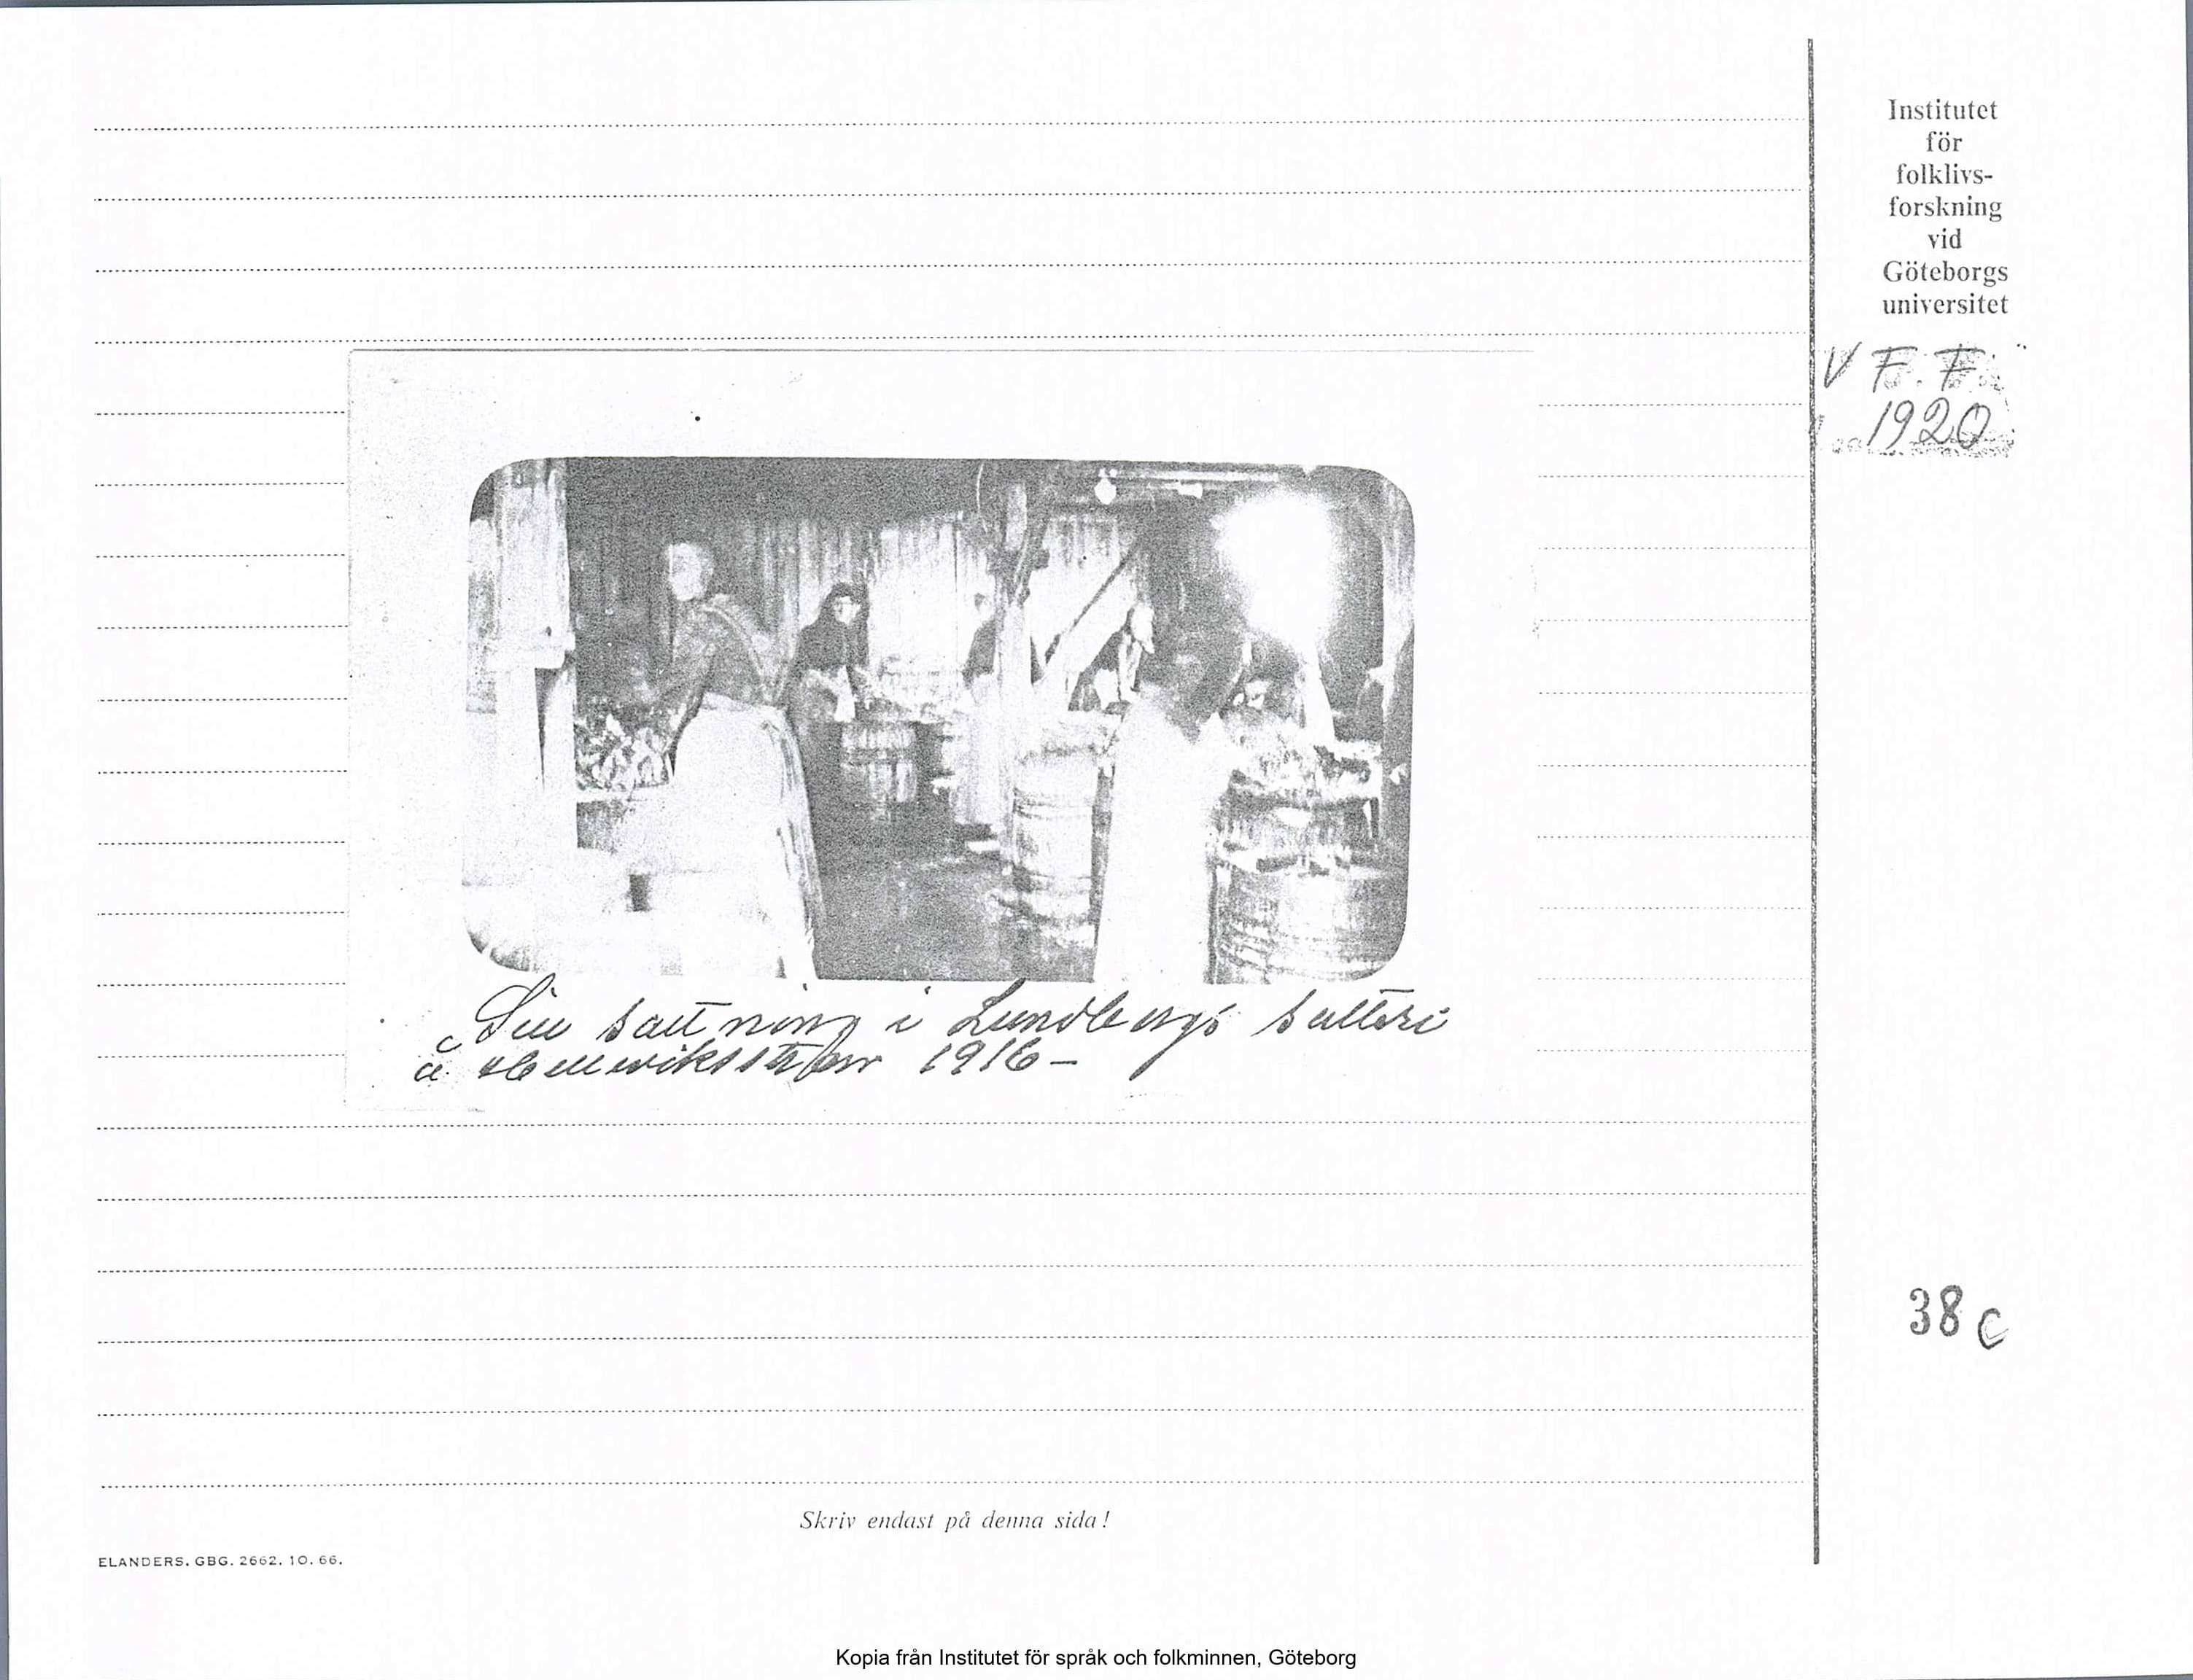 Institutet
för
folklivs-
forskning
vid
Göteborgs
universitet
V F. F.
1920
Sill saltning i Lundbergs salteri
å 1916 –
38 c
Skriv endast på denna sida!
ELANDERS. GBG. 2662. 10. 66.
Kopia från Institutet för språk och folkminnen, Göteborg